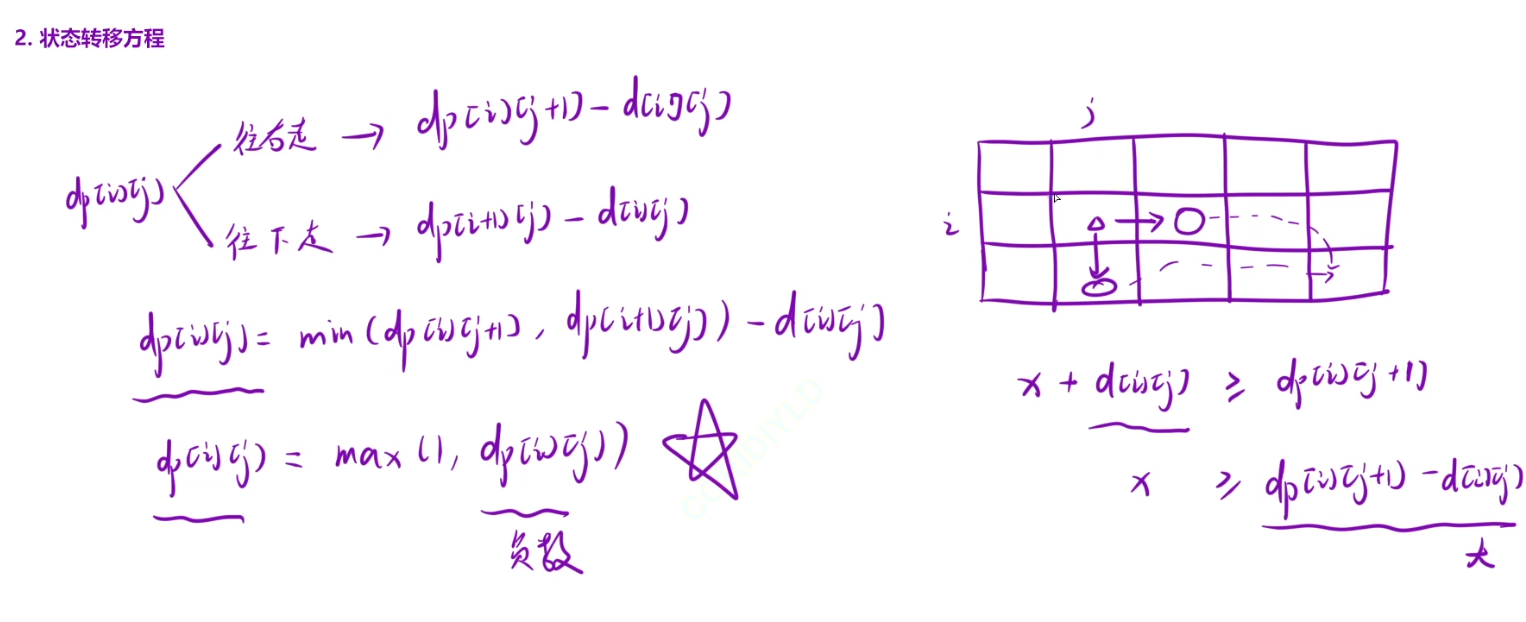 2. 状态转移方程
往右走 → dp[i][j+1] - d[i][j]
dp[i][j]
往下走 → dp[i+1][j] - d[i][j]
dp[i][j] = min(dp[i][j+1], dp[i+1][j]) - d[i][j]
dp[i][j] = max(1, dp[i][j])
负数
j
i
x + d[i][j] ≥ dp[i][j+1]
x ≥ dp[i][j+1] - d[i][j]